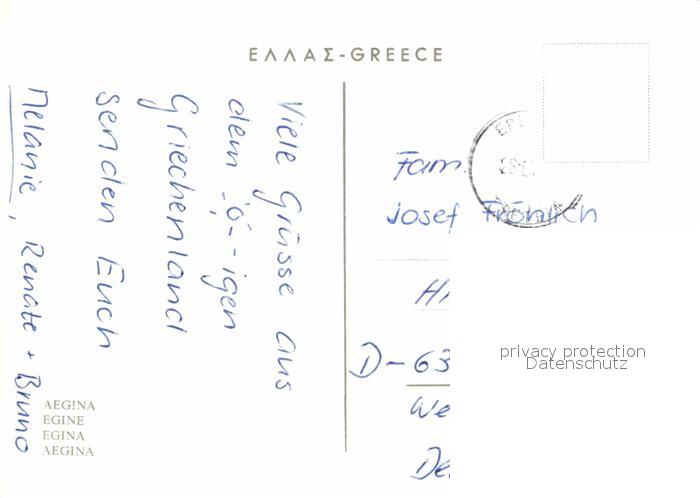 ΕΛΛΑΣ-GREECE
Viele Grüsse aus
dem -igen
Griechenland
senden Euch
Melanie, Renate + Bruno
AEGINA
EGINE
EGINA
AEGINA
Fam
Josef Fröhlich
Hi
D-63
We
De
privacy protection
Datenschutz